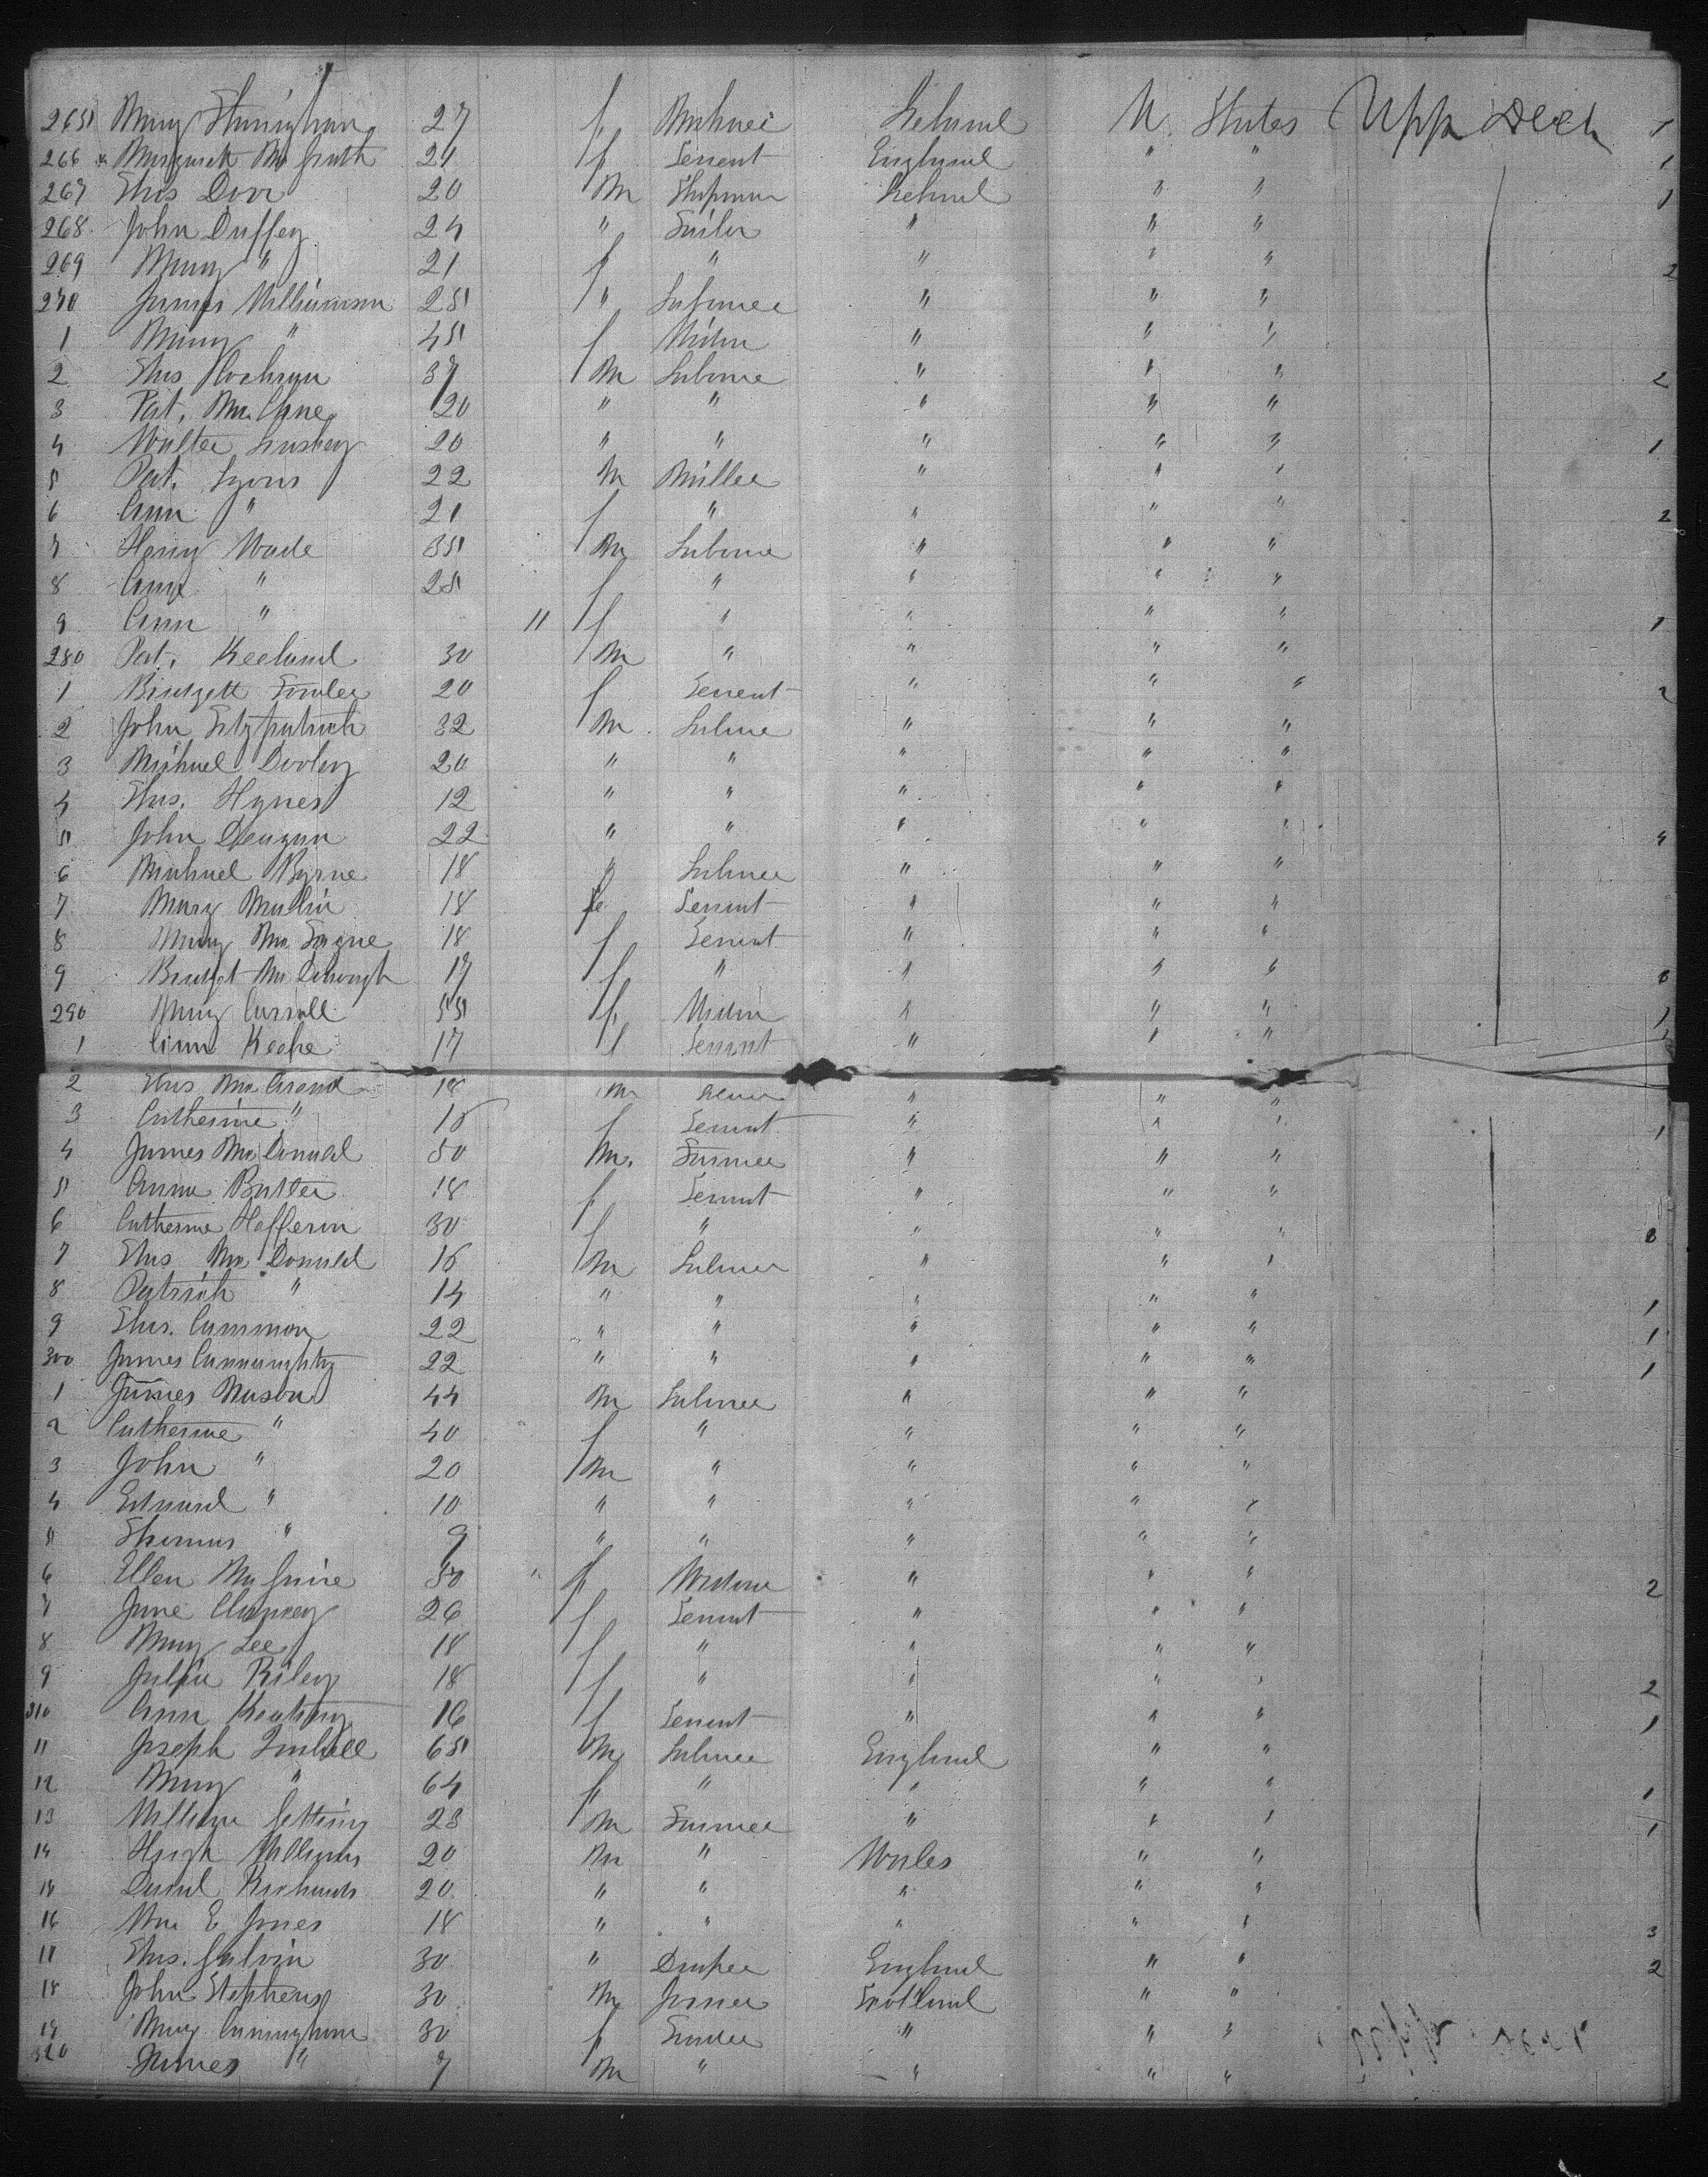 265 Mary 27 f Ireland U. States Upp Deck 1
266 x Margarett McGrath 24 f Servent England " " 1
267 Thos Dorr 20 M Shipman Ireland " " 1
268 John Duffey 24 " Sailor " " "
269 Mary " 21 f " " " " 2
270 James Williamson 25 " Labourer " " "
1 Mary " 45 f Widow " " "
2 Thos 37 M Labourer " " " 2
3 Pat. 20 " " " " "
4 Walter 20 " " " " " 1
5 Pat. Lyons 22 M Miller " " "
6 Ann " 21 f " " " " 2
7 Henry Wade 35 M Labourer " " "
8 " 25 f " " " "
9 Ann " 11 f " " " " 1
280 Pat. Keeland 30 M " " " "
1 Bridgett Fowler 20 f Servent " " " 2
2 John Fitzpatrick 32 M Labourer " " "
3 Michael Dooley 20 " " " " "
4 Thos. Hynes 12 " " " " "
5 John 22 " " " " " 4
6 Michael Byrne 18 " Labourer " " "
7 Mary Mulin 18 fe Servent " " "
8 Mary 18 f Servent " " "
9 Bridget 17 f " " " " 3
290 Mary Carroll 55 f. Widow " " " 1
1 Ann Keefe 17 f Servent " " "
2 Thos 18 M " " "
3 Catherine " 15 f Servent " " " 1
4 James McDonald 50 M. Farmer " " "
5 Anna Butler 18 f Servent " " "
6 Catherine Hefferin 30 f " " " " 3
7 Thos McDonald 16 M Labourer " " "
8 Patrick " 14 " " " " " 1
9 Thos. Cammon 22 " " " " " 1
300 James Cannaughty 22 " " " " " 1
1 James Mason 44 M Labourer " " "
2 Catherine " 40 f " " " "
3 John " 20 M " " " "
4 Edward " 10 " " " " "
5 Thomas " 9 " " " " "
6 Ellen McGuire 50 " f Widow " " " 2
7 Jane Clancey 26 f Servent " " "
8 Mary Lee 18 f " " " "
9 Julia Riley 18 f " " " " 2
310 Ann Keating 16 f Servent " " " 1
11 Joseph 65 M Labourer England " "
12 Mary " 64 f " " " " 1
13 William Gitting 23 M Farmer " " " 1
14 Hugh Williams 20 M " Wales " "
15 David Richards 20 " " " " "
16 Wm E Jones 18 " " " " " 3
17 Thos. Galvin 30 " Draper England " " 2
18 John Stephens 30 M Joiner Scotland " "
19 Mary Cuningham 30 f " " "
320 James " 7 M " " " "